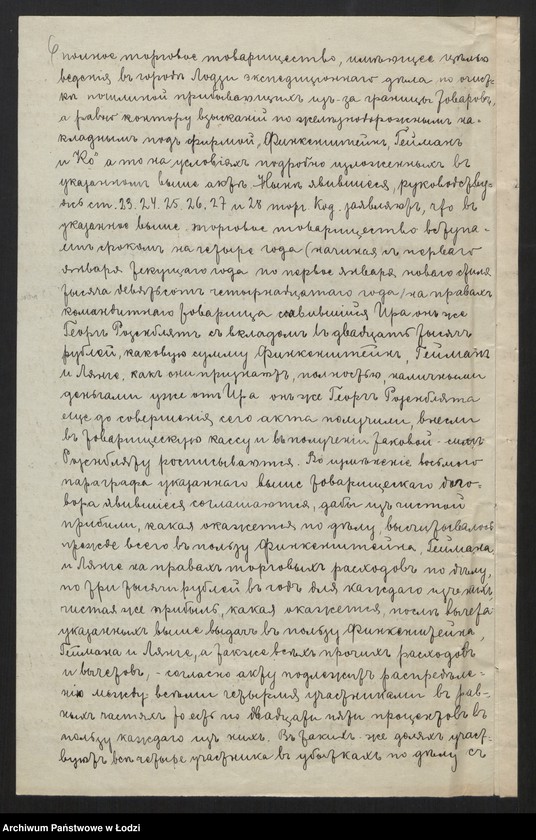 полное торговое товарищество, имѣющее цѣлью
веденія въ городѣ Лодзи экспедиціоннаго дѣла, по очист-
кѣ пошлиной прибывающихъ изъ-за границы товаровъ,
а равно контору взысканій по желѣзнодорожнымъ на-
кладнымъ подъ фирмой, Финкенштейнъ, Гейманъ
и Ко" а то на условіяхъ подробно изложенныхъ въ
указанномъ выше актѣ. Нынѣ явившіеся, руководству-
ясь ст. 23. 24. 25. 26. 27 и 28 торг. Код. заявляютъ, что въ
указанное выше торговое товарищество вступа-
етъ срокомъ на четыре года (начиная съ перваго
января текущаго года по первое января новаго стиля
тысяча девятьсотъ четырнадцатаго года) на правахъ
командитнаго товарища явившійся Ира онъ же
Георгъ Розенблятъ съ вкладомъ въ двадцать тысячъ
рублей, каковую сумму Финкенштейнъ, Гейманъ
и Лянге, какъ они признаютъ, полностью, наличными
деньгами уже отъ Ира онъ же Георгъ Розенблята
еще до совершенія сего акта получили, внесли
въ товарищескую кассу и въ полученіи таковой симъ
Розенбляту росписываются. Во измѣненіе восьмого
параграфа указаннаго выше товарищескаго дого-
вора явившіеся соглашаются, дабы изъ чистой
прибыли, какая окажется по дѣлу, высчитывалось
прежде всего въ пользу Финкенштейна, Геймана
и Лянге на правахъ торговыхъ расходовъ по дѣлу,
по три тысячи рублей въ годъ для каждаго изъ нихъ,
чистая же прибыль, какая окажется, послѣ вычета
указанныхъ выше выдачъ въ пользу Финкенштейна,
Геймана и Лянге, а также всѣхъ прочихъ расходовъ
и вычетовъ, - согласно акту подлежитъ распредѣле-
нію между всѣми четырмя участниками въ рав-
ныхъ частяхъ то есть по двадцати пяти процентовъ въ
пользу каждаго изъ нихъ. Въ такихъ же доляхъ участ-
вуютъ всѣ четыре участника въ убыткахъ по дѣлу съ
Archiwum Państwowe w Łodzi